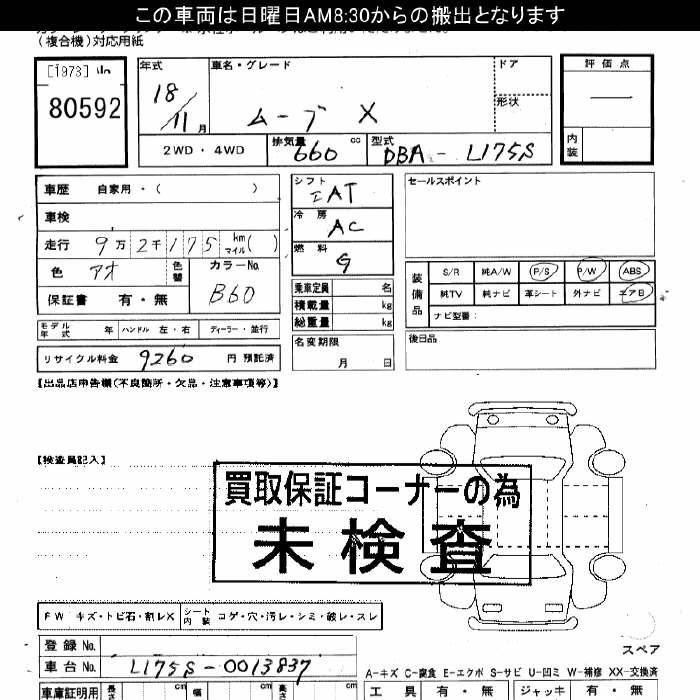 この車両は日曜日AM8:30からの搬出となります
(複合機)対応用紙
[1973]
80592
年式
18/11月
車名・グレード
ムーブ X
ドア
形状
評価点
内装
2WD・4WD
排気量 660 cc
型式 DBA-L175S
車歴 自家用・( )
車検
走行 9万2千175 km マイル( )
色 アオ
色替
カラーNo. B60
保証書 有・無
モデル年式 年
ハンドル 左・右
ディーラー・並行
リサイクル料金 9260 円 預託済
シフト AT
冷房 AC
燃料 G
乗車定員 名
積載量 kg
総重量 kg
名変期限
月 日
セールスポイント
装備品
S/R 純A/W P/S P/W ABS
純TV 純ナビ 革シート 外ナビ エアB
ナビ型番:
後日品
【出品店申告欄(不良箇所・欠品・注意事項等)】
【検査員記入】
買取保証コーナーの為
未検査
FW キズ・トビ石・割レX
シート内装 コゲ・穴・汚レ・シミ・破レ・スレ
登録No.
車台No. L175S-0013837
車庫証明用 長さ cm 幅 cm 高さ cm
スペア
A-キズ C-腐食 E-エクボ S-サビ U-凹ミ W-補修 XX-交換済
工具 有・無 ジャッキ 有・無